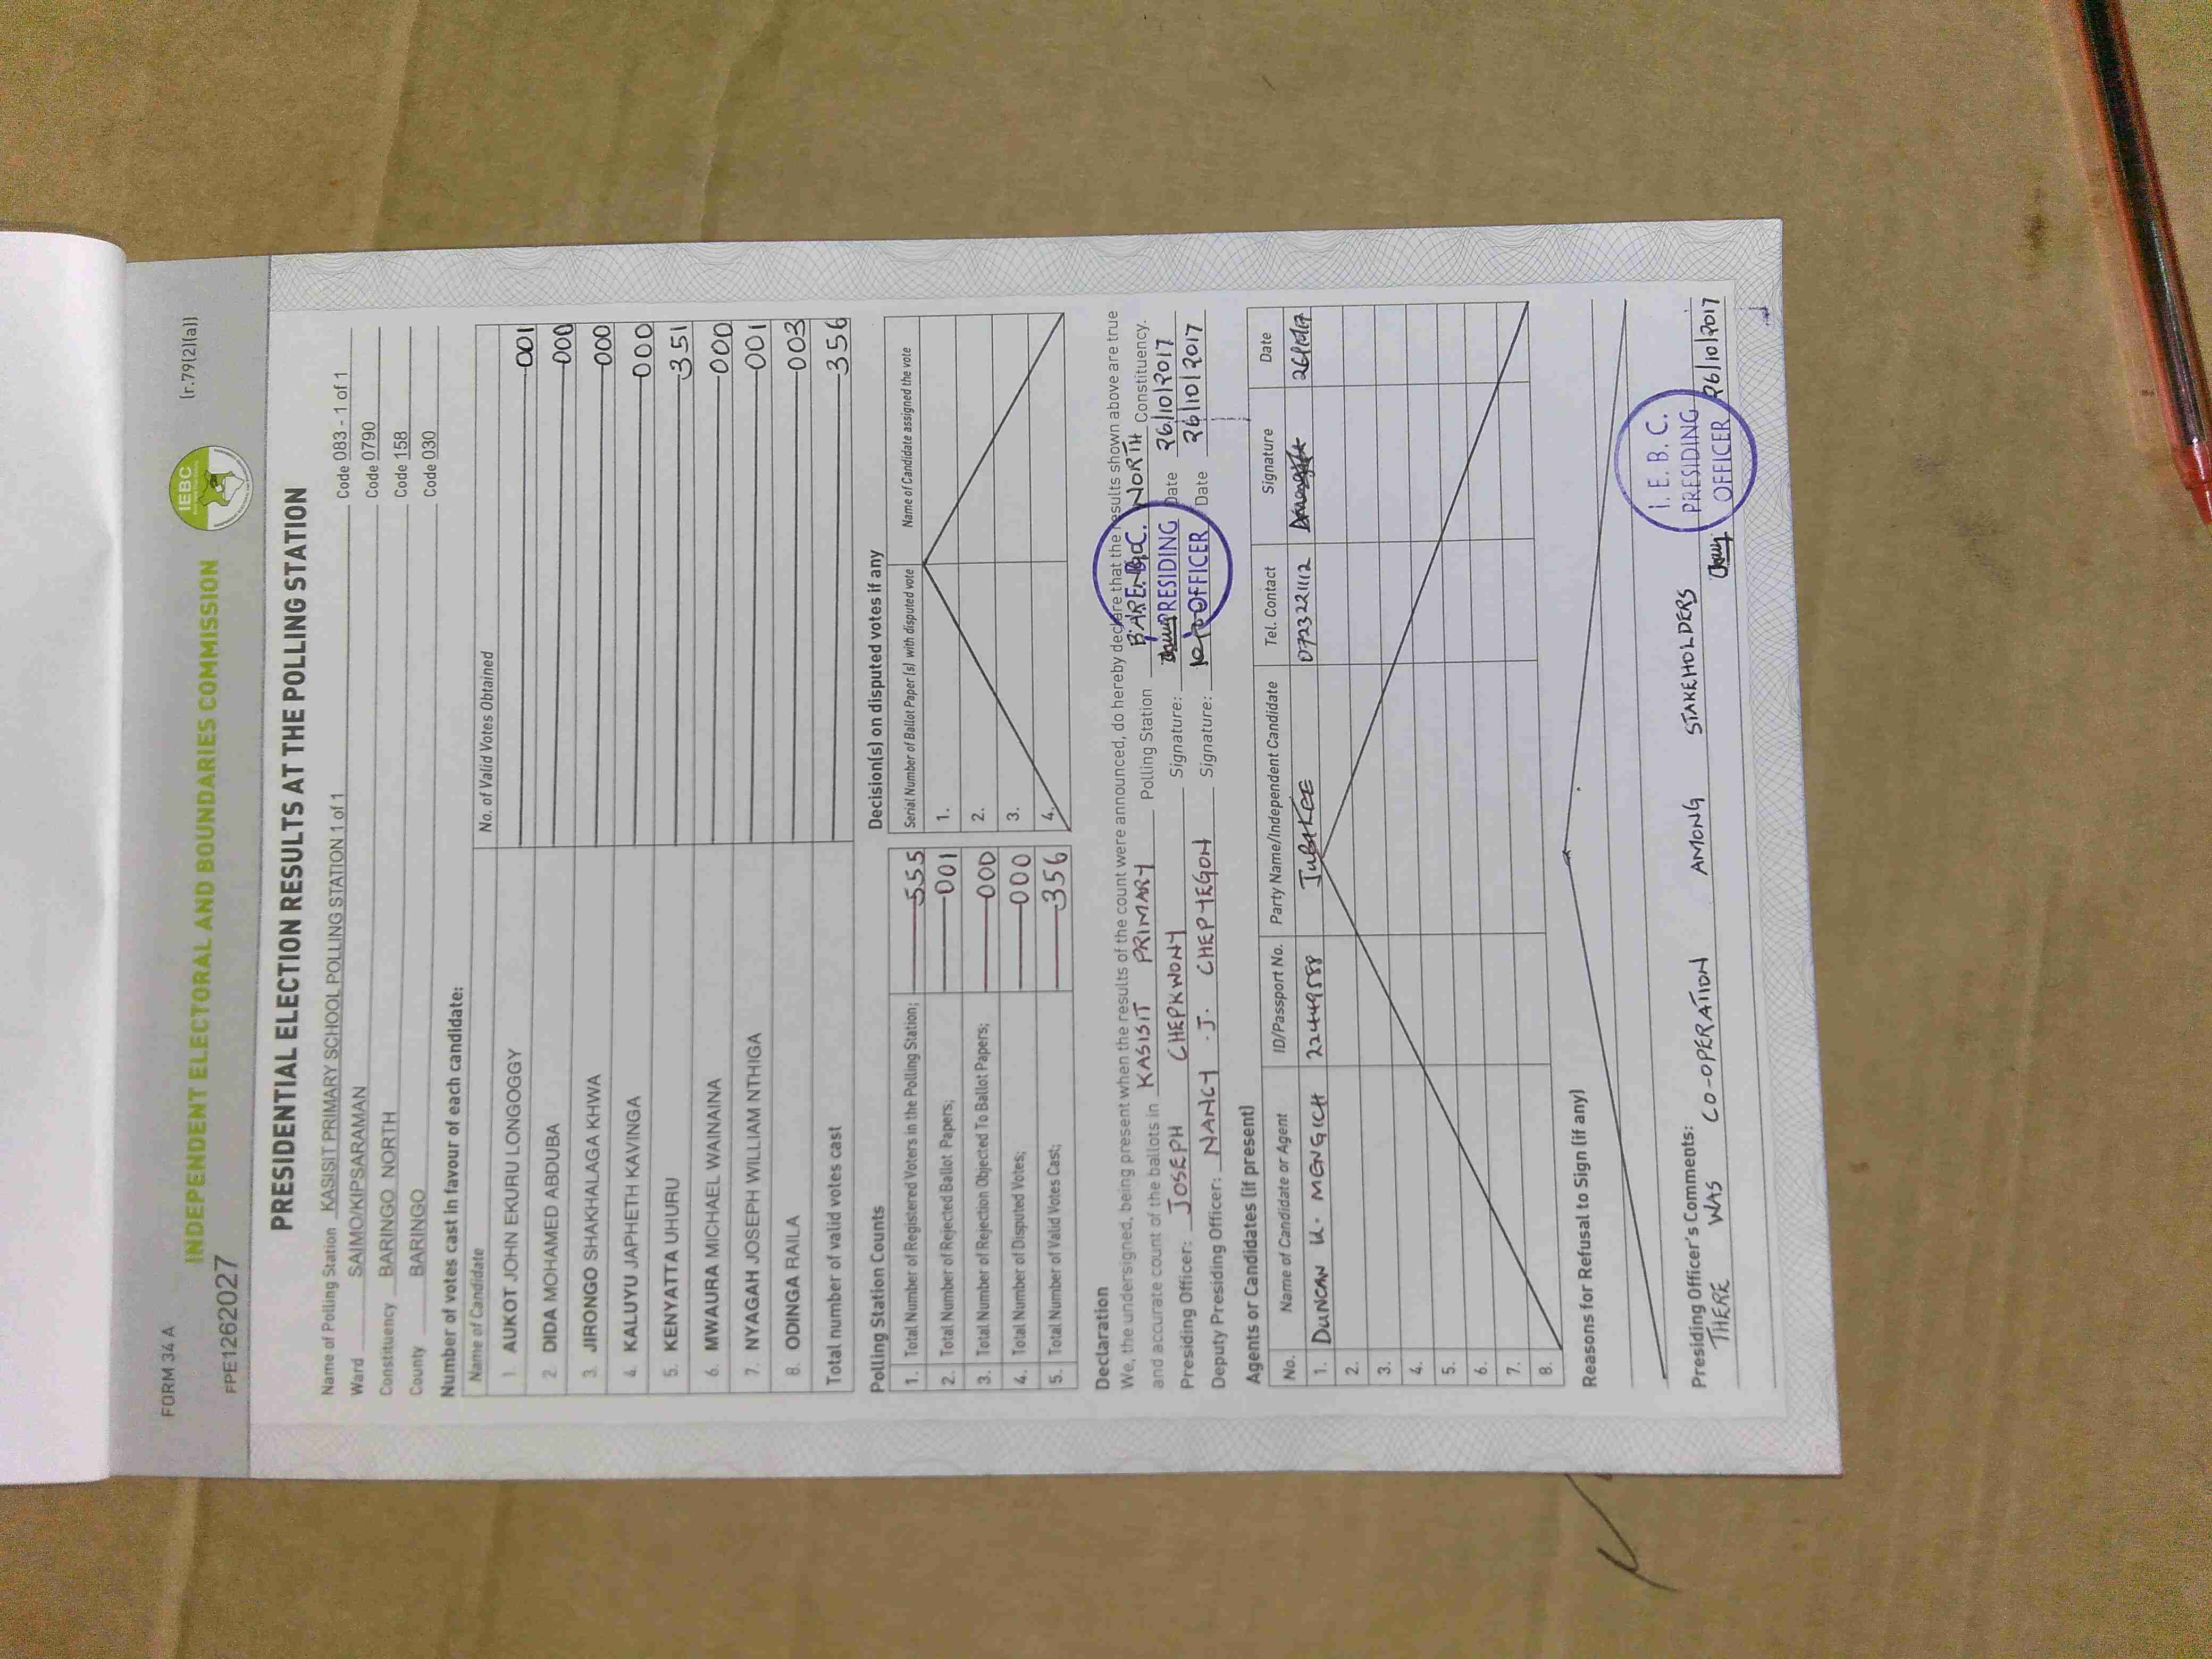 FORM 34 A
(r.79(2)(a))
INDEPENDENT ELECTORAL AND BOUNDARIES COMMISSION
IEBC
FPE1262027
PRESIDENTIAL ELECTION RESULTS AT THE POLLING STATION
Name of Polling Station KASISIT PRIMARY SCHOOL POLLING STATION 1 of 1 Code 083 - 1 of 1
Ward SAIMO/KIPSARAMAN Code 0790
Constituency BARINGO NORTH Code 158
County BARINGO Code 030
Number of votes cast in favour of each candidate:
Name of Candidate No. of Valid Votes Obtained
1 AUKOT JOHN EKURU LONGOGGY 001
2. DIDA MOHAMED ABDUBA 000
3. JIRONGO SHAKHALAGA KHWA 000
4. KALUYU JAPHETH KAVINGA 000
5. KENYATTA UHURU 351
6. MWAURA MICHAEL WAINAINA 000
7. NYAGAH JOSEPH WILLIAM NTHIGA 001
8. ODINGA RAILA 003
Total number of valid votes cast 356
Polling Station Counts
1. Total Number of Registered Voters in the Polling Station; 555
2. Total Number of Rejected Ballot Papers; 001
3. Total Number of Rejection Objected To Ballot Papers; 000
4. Total Number of Disputed Votes; 000
5. Total Number of Valid Votes Cast; 356
Decision(s) on disputed votes if any
Serial Number of Ballot Paper(s) with disputed vote Name of Candidate assigned the vote
1.
2.
3.
4.
Declaration
We, the undersigned, being present when the results of the count were announced, do hereby declare that the results shown above are true
and accurate count of the ballots in KASISIT PRIMARY Polling Station NORTH Constituency.
Presiding Officer: JOSEPH CHEPKWONY Signature: Date 26/10/2017
Deputy Presiding Officer: NANCY J. CHEPTEGON Signature: Date 26/10/2017
PRESIDING
OFFICER
Agents or Candidates (if present)
No. Name of Candidate or Agent ID/Passport No. Party Name/Independent Candidate Tel. Contact Signature Date
1. DUNCAN K. MENGICH 22449558 JUBILEE 0723221112
2.
3.
4.
5.
6.
7.
8.
Reasons for Refusal to Sign (if any)
Presiding Officer's Comments:
THERE WAS CO-OPERATION AMONG STAKEHOLDERS
I. E. B. C.
PRESIDING
OFFICER
26/10/2017